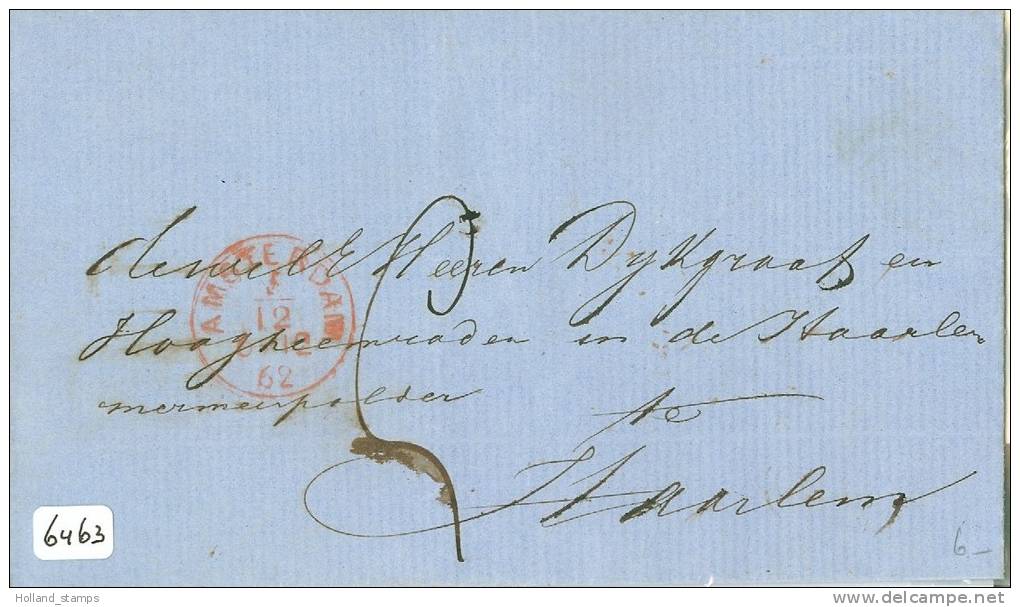 E Heeren Dykgraaf en
Hoogheemraden in de Haarlem
mermeerpolder te
Haarlem
AMSTERDAM
12
62
6463
6.-
Holland_stamps
delcampe.net